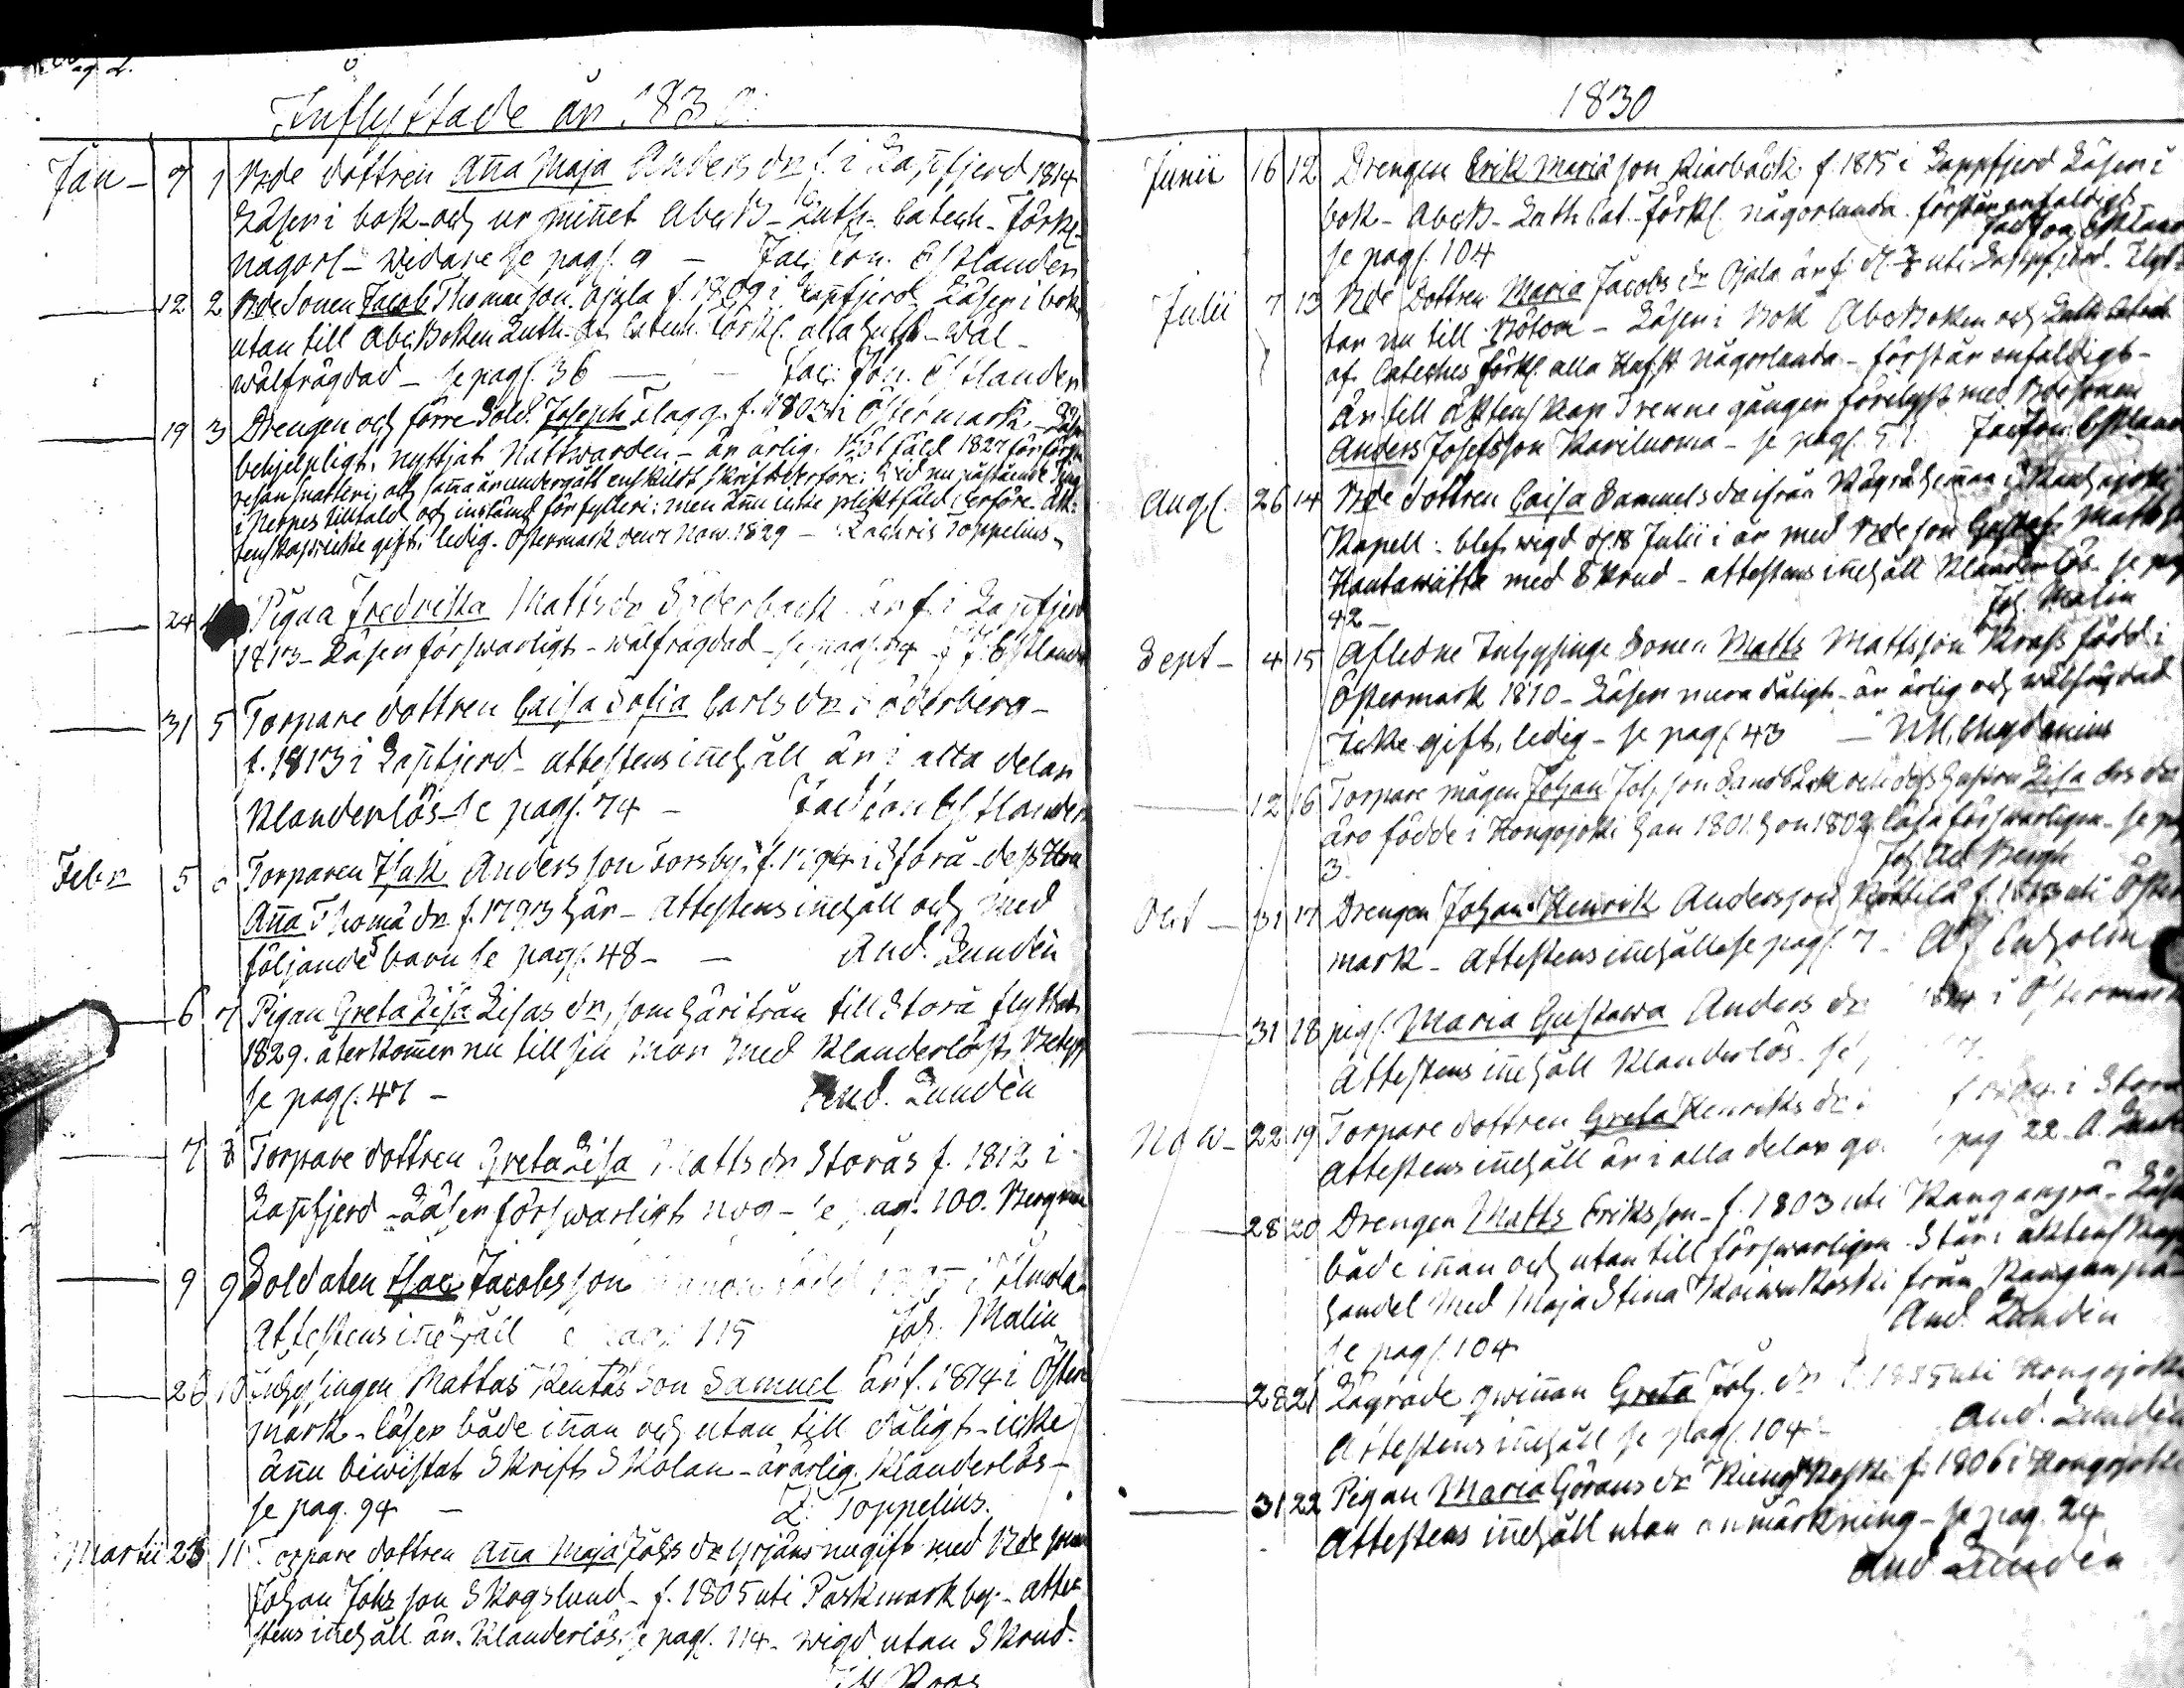 Inflyttade år 1830
Jan - 7 1 Bde dottren Aña Maja Anders dr f. i Lapfjerd 1814
Läser i bok och ur miñet AbcB - Luth. Catech - förkl.
någorl - widare se pag. 9 - Jac. Jon. Estlander
12 2 Bde Sonen Jacob Thomasson Ojala f. 1809 i Lapfjerd Läser i bok
utan till AbcBoken Luth. Catech. förkl. alla - wäl -
wälfrägdad - se pag. 36 - Jac. Jon. Estlander
19 3 Drengen och förre Sold. Joseph Flagg f. 1803 i Östermark
behjelpligt, nyttjat Nattwarden - är ärlig. 1827 för första
resan och saña år undergått enskildt skrift derföre;
i Nerpes tilltald och instämd för fylleri; men änu icke pliktfäld derföre.
icke gift, ledig. Östermark den Nov. 1829 - Zachris Toppelius
24 Pigan Fredrika Matts dr Söderback är f. i Lapfjerd
1813 - Läser förswarligt - wälfrägdad - se pag. 74 - J. J. Estlander
31 5 Torpare dottren Caisa Sofia Carls dr Söderberg -
f. 1813 i Lapfjerd - attestens iñehåll är i alla delar
klanderlös - se pag. 74 - Jac Jon Estlander
Febr 5 6 Torparen Isak Andersson Forsby, f. 1794 i Storå - dess Hru
Aña Thomä dr f. 1793 här - Attestens iñehåll och med
följande barn se pag. 48 - - And. Lundén
6 7 Pigan Greta Lisa Lisas dr, som härifrån till Storå flyttat
1829. återkomer nu till sin mor med klanderlöst betyg
se pag. 47 - And. Lundén
7 8 Torpare dottren Greta Lisa Matts dr Storås f. 1812 i
Lapfjerd - Läser förswarligt nog - se pag. 100. Bergman
9 9 Soldaten Isac Jacobsson i Ilmola
Attestens iñehåll se pag. 115 Joh. Malin
26 10 Inhysingen Mattas Kentäs Son Samuel är f. 1814 i Öster
mark - läser både iñan och utan till dåligt - icke
äñu biwistat SkriftSkolan - är ärlig. Klanderlös -
se pag. 94 - Z. Toppelius.
Martii 23 11 Torpare dottren Aña Maja Johs dr Yrjäns nugift med Bde sonen
Johan Johsson Skogslund - f. 1805 uti Påskmark by - Atte
stens iñehåll är Klanderlös. se pag. 114 - wigd utan Skrud.
Roos
1830
Junii 16 12 Drengen Erik Mariäson Kiarbäck f. 1815 i Lappfjerd Läser i
bok - AbcB - Luth Cat - förkl. någorlunda förstår enfaldigt
se pag. 104 Jac Jon Estlander
Julii 7 13 Bde Dottren Maria Jacobs dr Ojala är f. uti Lappfjerd - flyt
tar nu till Bötom - Läser i Bok AbcBoken och Luth Catech
af Cateches förkl. alla någorlunda - förstår enfaldigt -
är till äktenskap Trenne gånger förelyst med Bdesonen
Anders Josefsson Kariluoma - se pag. 51. Jac Jon Estlander
Aug. 26 14 Bde dottren Caisa Samuels dr ifrån
Kapell: blef wigd d. 18 Julii i år med Bdeson Gustaf Matts
med Skrud - attestens iñehåll Klanderlös - se pag
42 - Joh Malin
Sept - 4 15 Afledne Inhysinge Sonen Matts Mattsson Krass född i
Östermark 1810 - Läser mera dåligt - är ärlig och wälfrägdad
Icke gift, ledig - se pag. 43 - Chydenius
12 16 Torpare mågen Johan Johsson Sandbäck och dess hustru Lisa dr
äro födde i Kongojoki han 1801. hon 1802 läsa förswarligen - se pag
3. Joh. Ad Bergh
Oct - 31 17 Drengen Johan Henrik Andersson Kottila f. 1813 uti Öster
mark - Attestens iñehåll se pag. 7 - Enholm
31 18 pig. Maria Gustawa Anders dr i Östermark
Attestens iñehåll Klanderlös - se
Now - 22 19 Torpare dottren Greta Henriks dr i Storå
Attestens iñehåll är i alla delar pag 22 A. Lundén
28 20 Drengen Matts Eriksson - f. 1803 uti Kauganperä - Läser
både iñan och utan till förswarligen - Står i äktenskaps
handel med Maja Stina från Kauganperä
se pag. 104 And. Lundén
28 21 Lägrade qwiñan Greta Joh. dr uti Kongojoki
Attestens iñehåll se pag. 104 - And. Lundén
31 22 Pigan Maria Görans dr f. 1806 i Kongojoki
Attestens iñehåll utan anmärkning - se pag. 24
And Lundén